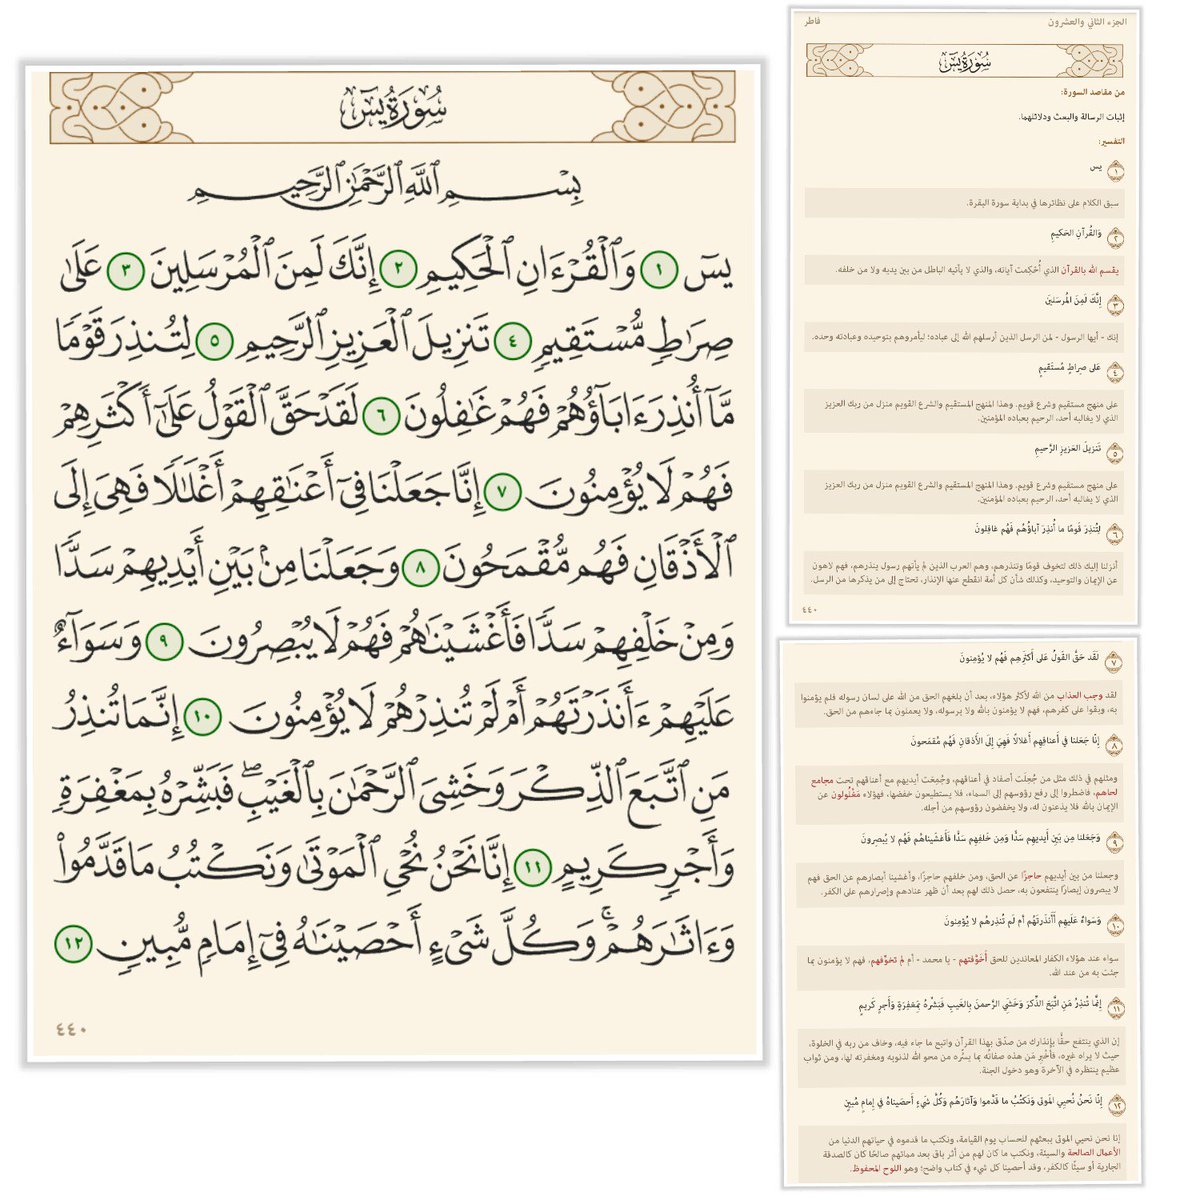 سُورَةُ يسٓ
بِسۡمِ ٱللَّهِ ٱلرَّحۡمَٰنِ ٱلرَّحِيمِ
يسٓ ١ وَٱلۡقُرۡءَانِ ٱلۡحَكِيمِ ٢ إِنَّكَ لَمِنَ ٱلۡمُرۡسَلِينَ ٣ عَلَىٰ
صِرَٰطٖ مُّسۡتَقِيمٖ ٤ تَنزِيلَ ٱلۡعَزِيزِ ٱلرَّحِيمِ ٥ لِتُنذِرَ قَوۡمٗا
مَّآ أُنذِرَ ءَابَآؤُهُمۡ فَهُمۡ غَٰفِلُونَ ٦ لَقَدۡ حَقَّ ٱلۡقَوۡلُ عَلَىٰٓ أَكۡثَرِهِمۡ
فَهُمۡ لَا يُؤۡمِنُونَ ٧ إِنَّا جَعَلۡنَا فِيٓ أَعۡنَٰقِهِمۡ أَغۡلَٰلٗا فَهِيَ إِلَى
ٱلۡأَذۡقَانِ فَهُم مُّقۡمَحُونَ ٨ وَجَعَلۡنَا مِنۢ بَيۡنِ أَيۡدِيهِمۡ سَدّٗا
وَمِنۡ خَلۡفِهِمۡ سَدّٗا فَأَغۡشَيۡنَٰهُمۡ فَهُمۡ لَا يُبۡصِرُونَ ٩ وَسَوَآءٌ
عَلَيۡهِمۡ ءَأَنذَرۡتَهُمۡ أَمۡ لَمۡ تُنذِرۡهُمۡ لَا يُؤۡمِنُونَ ١٠ إِنَّمَا تُنذِرُ
مَنِ ٱتَّبَعَ ٱلذِّكۡرَ وَخَشِيَ ٱلرَّحۡمَٰنَ بِٱلۡغَيۡبِۖ فَبَشِّرۡهُ بِمَغۡفِرَةٖ
وَأَجۡرٖ كَرِيمٍ ١١ إِنَّا نَحۡنُ نُحۡيِ ٱلۡمَوۡتَىٰ وَنَكۡتُبُ مَا قَدَّمُواْ
وَءَاثَٰرَهُمۡۚ وَكُلَّ شَيۡءٍ أَحۡصَيۡنَٰهُ فِيٓ إِمَامٖ مُّبِينٖ ١٢
٤٤٠
الجزء الثاني والعشرون
فاطر
سُورَةُ يسٓ
من مقاصد السورة:
إثبات الرسالة والبعث ودلائلهما.
التفسير:
١ يس
سبق الكلام على نظائرها في بداية سورة البقرة.
٢ وَالقُرآنِ الحَكيمِ
يقسم الله بالقرآن الذي أُحْكِمت آياته، والذي لا يأتيه الباطل من بين يديه ولا من خلفه.
٣ إِنَّكَ لَمِنَ المُرسَلينَ
إنك - أيها الرسول - لمن الرسل الذين أرسلهم الله إلى عباده؛ ليأمروهم بتوحيده وعبادته وحده.
٤ عَلى صِراطٍ مُستَقيمٍ
على منهج مستقيم وشرع قويم. وهذا المنهج المستقيم والشرع القويم منزل من ربك العزيز
الذي لا يغالبه أحد، الرحيم بعباده المؤمنين.
٥ تَنزيلَ العَزيزِ الرَّحيمِ
على منهج مستقيم وشرع قويم. وهذا المنهج المستقيم والشرع القويم منزل من ربك العزيز
الذي لا يغالبه أحد، الرحيم بعباده المؤمنين.
٦ لِتُنذِرَ قَومًا ما أُنذِرَ آباؤُهُم فَهُم غافِلونَ
أنزلنا إليك ذلك لتخوف قومًا وتنذرهم، وهم العرب الذين لم يأتهم رسول ينذرهم، فهم لاهون
عن الإيمان والتوحيد، وكذلك شأن كل أمة انقطع عنها الإنذار، تحتاج إلى من يذكرها من الرسل.
٤٤٠
٧ لَقَد حَقَّ القَولُ عَلى أَكثَرِهِم فَهُم لا يُؤمِنونَ
لقد وجب العذاب من الله لأكثر هؤلاء، بعد أن بلغهم الحق من الله على لسان رسوله فلم يؤمنوا
به، وبقوا على كفرهم، فهم لا يؤمنون بالله ولا برسوله، ولا يعملون بما جاءهم من الحق.
٨ إِنّا جَعَلنا في أَعناقِهِم أَغلالًا فَهِيَ إِلَى الأَذقانِ فَهُم مُقمَحونَ
ومثلهم في ذلك مثل من جُعِلَت أصفاد في أعناقهم، وجُمِعَت أيديهم مع أعناقهم تحت مجامع
لحاهم، فاضطروا إلى رفع رؤوسهم إلى السماء، فلا يستطيعون خفضها، فهؤلاء مَغْلُولون عن
الإيمان بالله فلا يذعنون له، ولا يخفضون رؤوسهم من أجله.
٩ وَجَعَلنا مِن بَينِ أَيديهِم سَدًّا وَمِن خَلفِهِم سَدًّا فَأَغشَيناهُم فَهُم لا يُبصِرونَ
وجعلنا من بين أيديهم حاجزًا عن الحق، ومن خلفهم حاجزًا، وأغشينا أبصارهم عن الحق فهم
لا يبصرون إبصارًا ينتفعون به، حصل ذلك لهم بعد أن ظهر عنادهم وإصرارهم على الكفر.
١٠ وَسَواءٌ عَلَيهِم أَأَنذَرتَهُم أَم لَم تُنذِرهُم لا يُؤمِنونَ
سواء عند هؤلاء الكفار المعاندين للحق أَخَوَّفتهم - يا محمد - أم لم تخوِّفهم، فهم لا يؤمنون بما
جئت به من عند الله.
١١ إِنَّما تُنذِرُ مَنِ اتَّبَعَ الذِّكرَ وَخَشِيَ الرَّحمنَ بِالغَيبِ فَبَشِّرهُ بِمَغفِرَةٍ وَأَجرٍ كَريمٍ
إن الذي ينتفع حقًّا بإنذارك من صدَّق بهذا القرآن واتبع ما جاء فيه، وخاف من ربه في الخلوة،
حيث لا يراه غيره، فأَخْبِر مَن هذه صفاته بما يسرُّه من محو الله لذنوبه ومغفرته لها، ومن ثواب
عظيم ينتظره في الآخرة وهو دخول الجنة.
١٢ إِنّا نَحنُ نُحيِي المَوتى وَنَكتُبُ ما قَدَّموا وَآثارَهُم وَكُلَّ شَيءٍ أَحصَيناهُ في إِمامٍ مُبينٍ
إنا نحن نحيي الموتى ببعثهم للحساب يوم القيامة، ونكتب ما قدموه في حياتهم الدنيا من
الأعمال الصالحة والسيئة، ونكتب ما كان لهم من أثر باق بعد مماتهم صالحًا كان كالصدقة
الجارية أو سيئًا كالكفر، وقد أحصينا كل شيء في كتاب واضح؛ وهو اللوح المحفوظ.